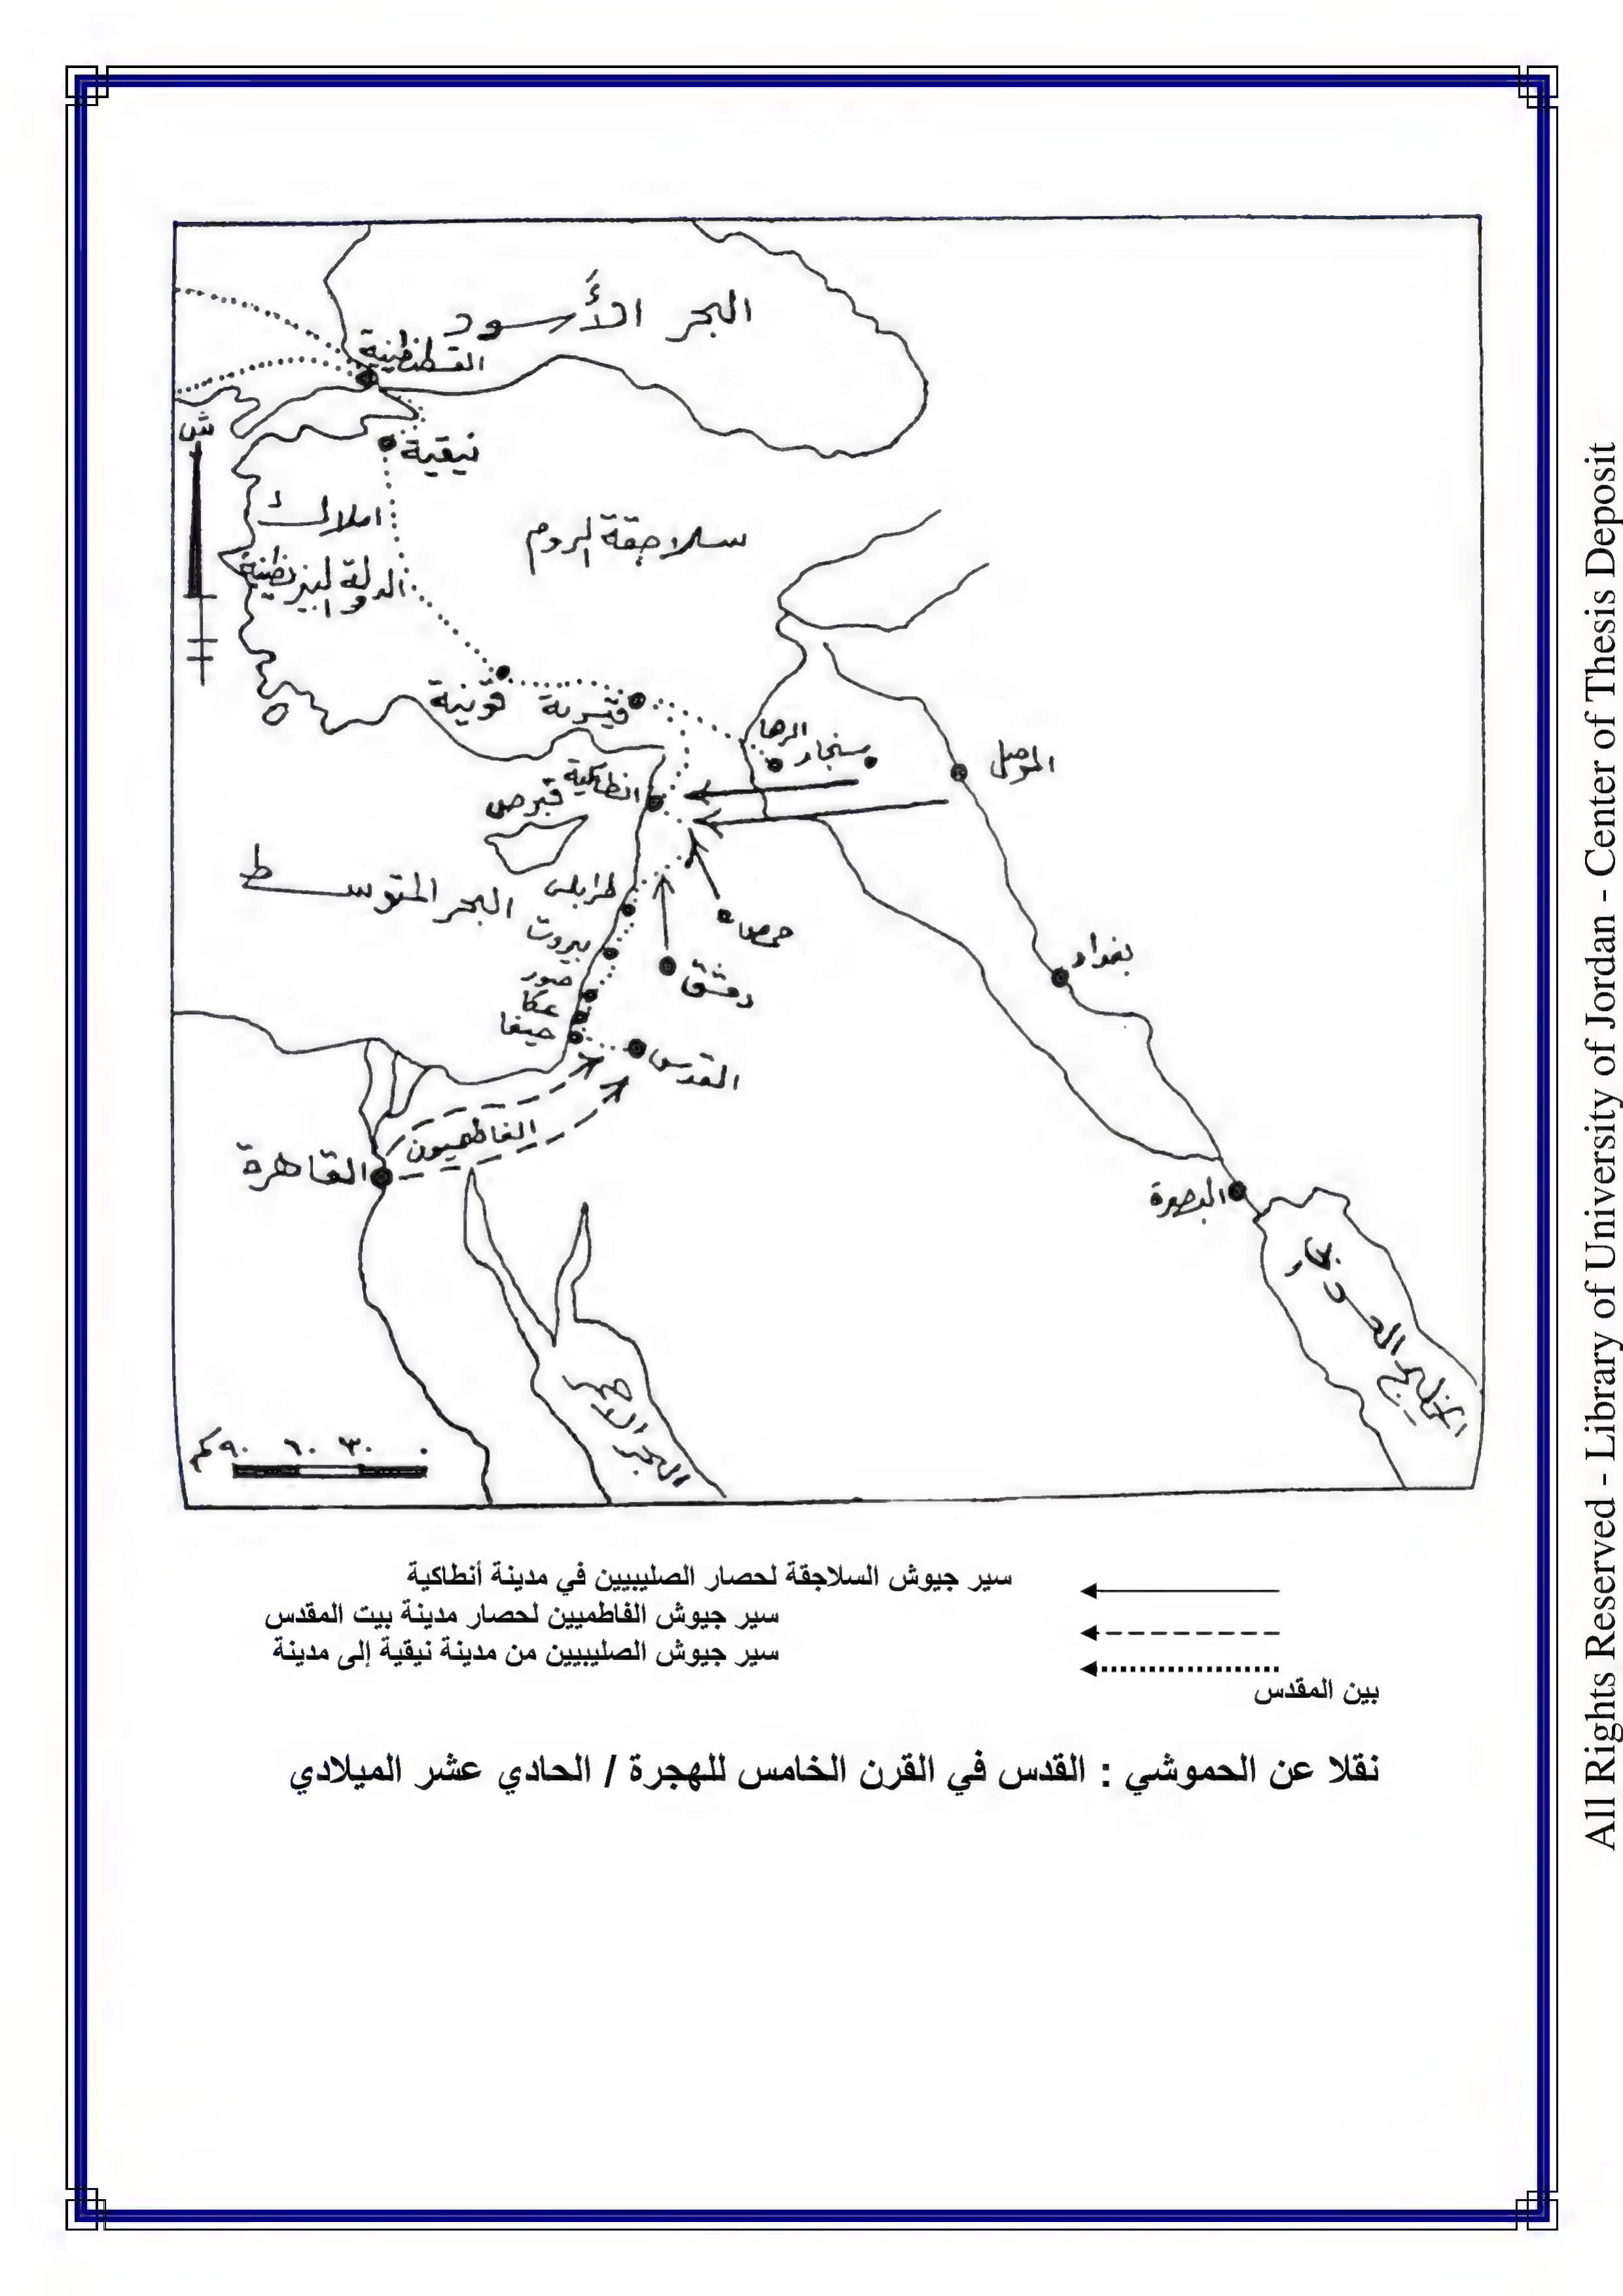 البحر الأسود
القسطنطينية
ش
نيقية
املاك
الدولة البيزنطية
سلاجقة الروم
قونية
قيسرية
الرها
سنجار
الموصل
انطاكية
قبرص
البحر المتوسط
طرابلس
حمص
بيروت
دمشق
بغداد
صور
عكا
حيفا
القدس
الفاطميون
القاهرة
البصرة
الخليج العربي
البحر الاحمر
٠ ٣٠ ٦٠ ٩٠ كم
سير جيوش السلاجقة لحصار الصليبيين في مدينة أنطاكية
سير جيوش الفاطميين لحصار مدينة بيت المقدس
سير جيوش الصليبيين من مدينة نيقية إلى مدينة
بين المقدس
نقلا عن الحموشي : القدس في القرن الخامس للهجرة / الحادي عشر الميلادي
All Rights Reserved - Library of University of Jordan - Center of Thesis Deposit